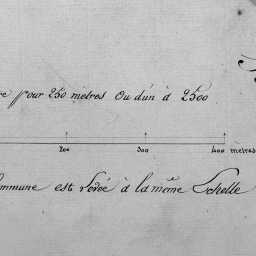 re pour 250 metres ou d'un à 2500
200 300 400 metres
ommune est levée à la même Echelle